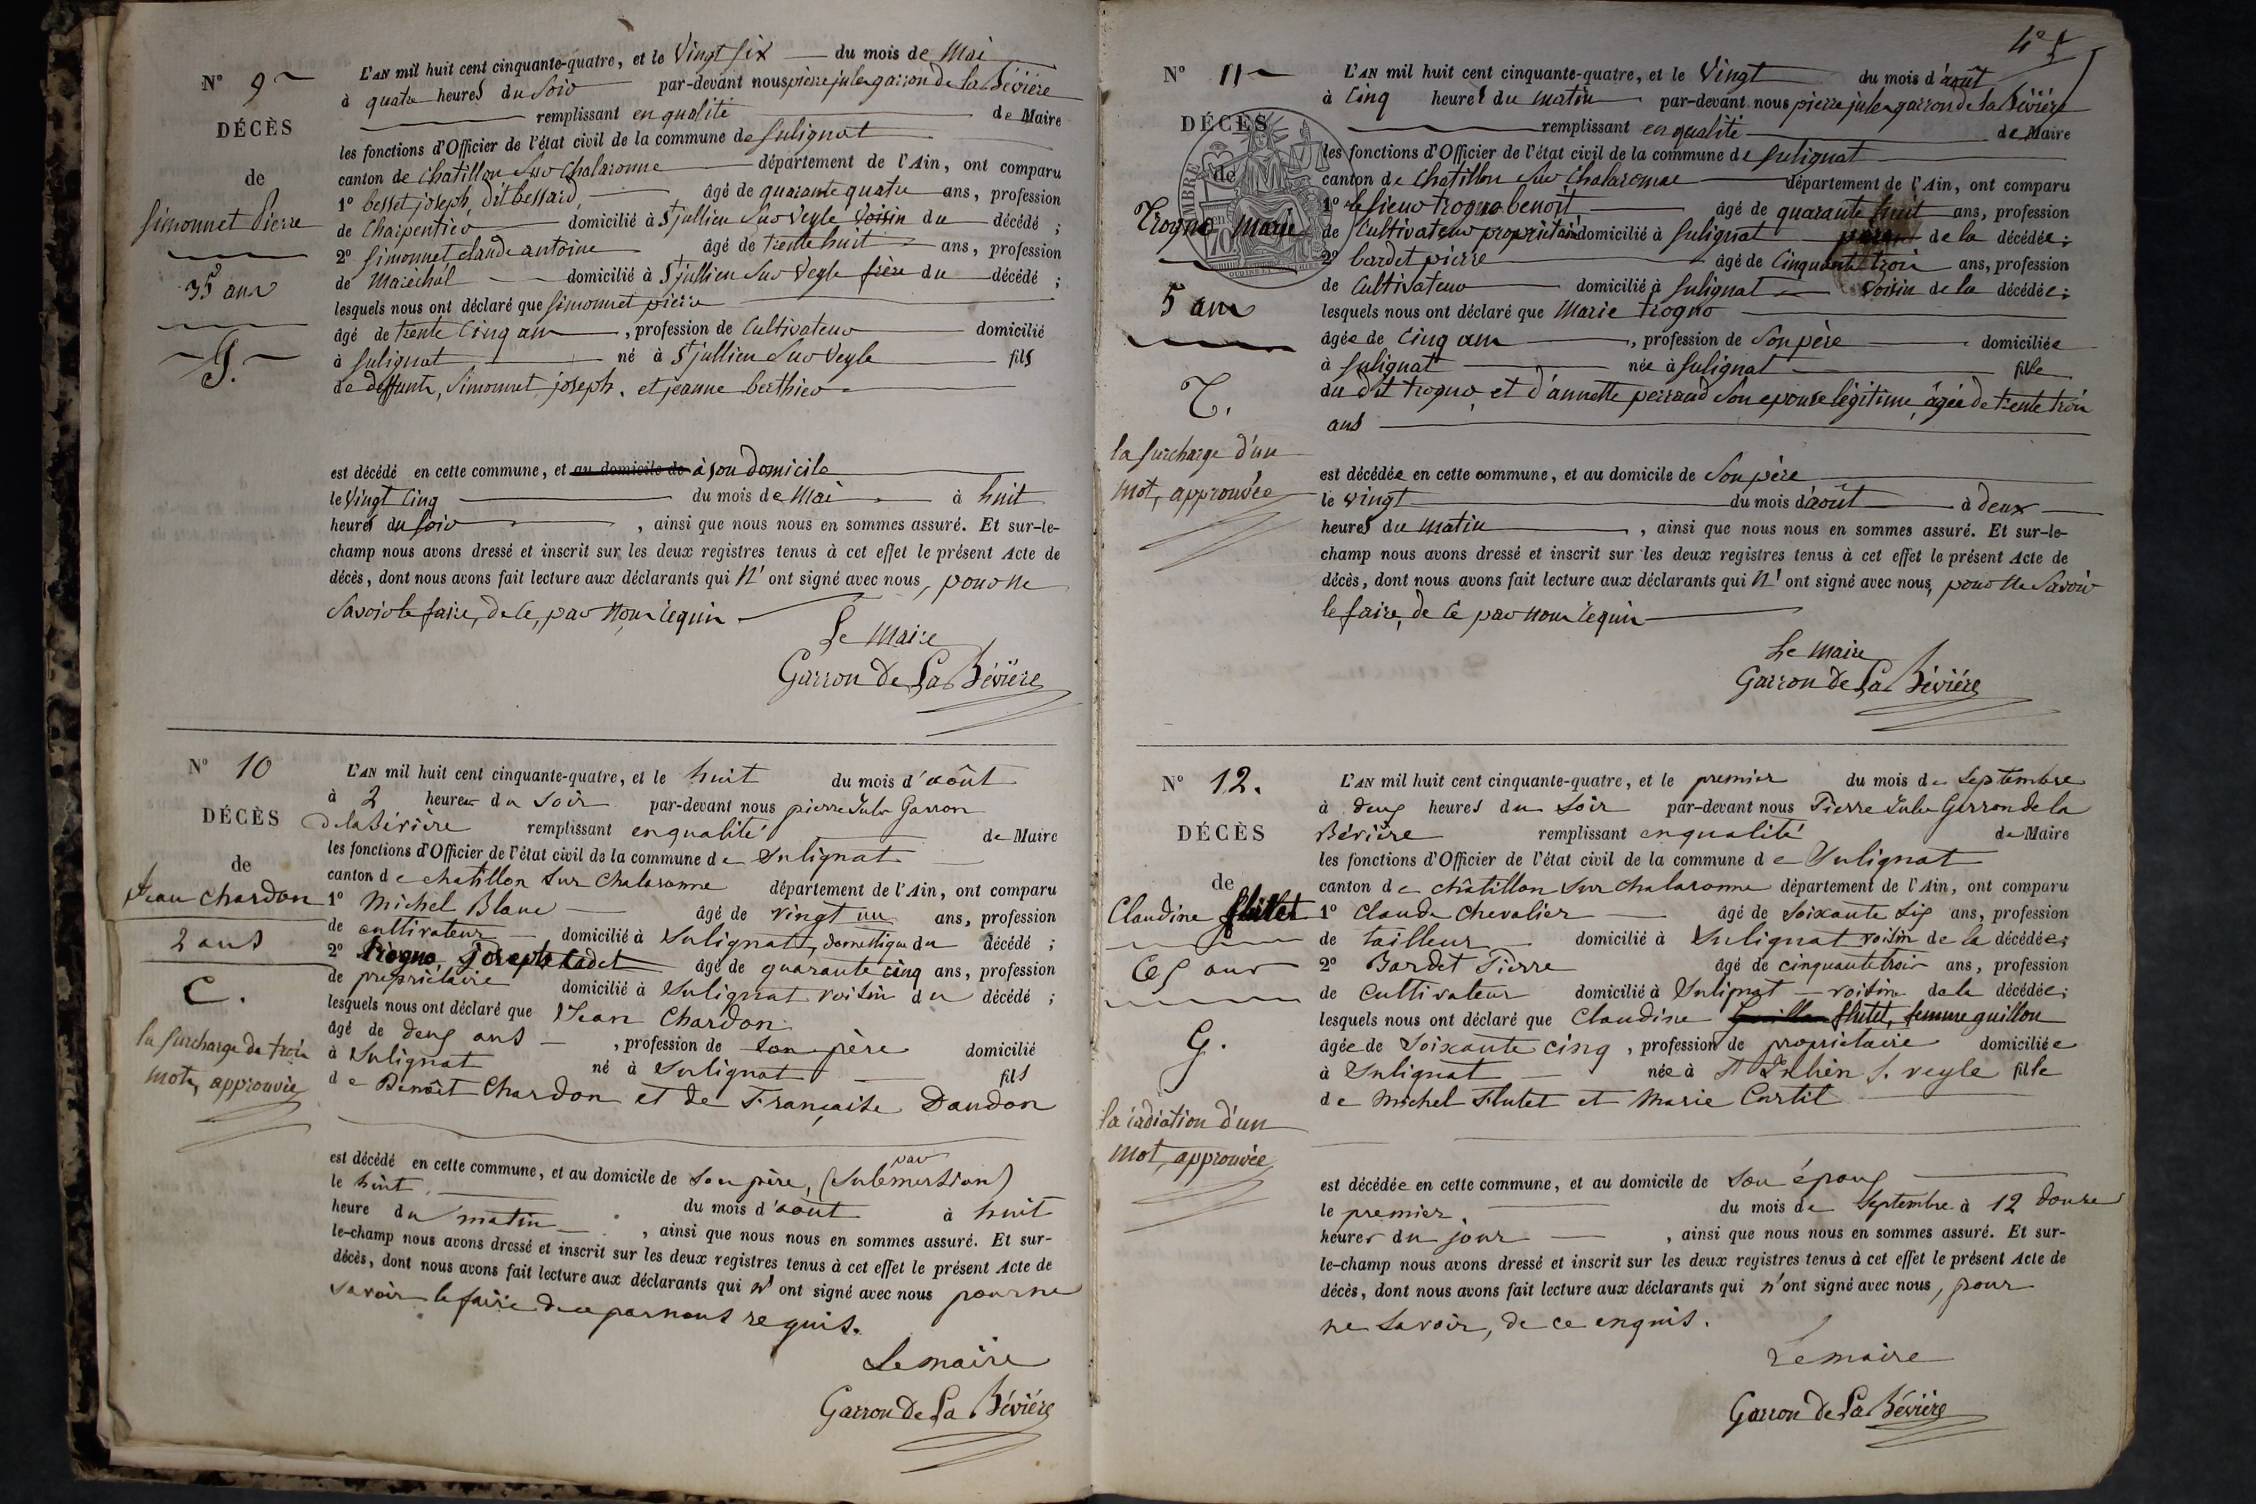 N° 9
DÉCÈS
de
Simonnet Pierre
35 ans
S.
L'AN mil huit cent cinquante-quatre, et le Vingt six du mois de Mai
à quatre heures du Soir par-devant nous pierre jules garron de la Bévière
remplissant en qualité de Maire
les fonctions d'Officier de l'état civil de la commune de Sulignat
canton de Chatillon Sur Chalaronne département de l'Ain, ont comparu
1° besset joseph, dit bessard, âgé de quarante quatre ans, profession
de Charpentier domicilié à St jullien Sur Veyle voisin du décédé ;
2° Simonnet claude antoine âgé de trente huit ans, profession
de Maréchal domicilié à St jullien Sur Veyle frère du décédé ;
lesquels nous ont déclaré que Simonnet pierre
âgé de trente cinq ans, profession de Cultivateur domicilié
à Sulignat né à St jullien Sur Veyle fils
de deffunts, Simonnet joseph, et jeanne berthier
est décédé en cette commune, et au domicile de à son domicile
le Vingt Cinq du mois de Mai à huit
heures du Soir, ainsi que nous nous en sommes assuré. Et sur-le-
champ nous avons dressé et inscrit sur les deux registres tenus à cet effet le présent Acte de
décès, dont nous avons fait lecture aux déclarants qui n' ont signé avec nous, pour ne
Savoir le faire, de ce, par nous requis
Le Maire
Garron de La Bévière
N° 10
DÉCÈS
de
Jean Chardon
2 ans
C.
la surcharge de trois
mots, approuvée
L'AN mil huit cent cinquante-quatre, et le huit du mois d'août
à 2 heures du soir par-devant nous pierre Jules Garron
de la Bévière remplissant en qualité de Maire
les fonctions d'Officier de l'état civil de la commune de Sulignat
canton de chatillon sur chalaronne département de l'Ain, ont comparu
1° Michel Blanc âgé de vingt un ans, profession
de cultivateur domicilié à Sulignat, domestique du décédé ;
2° Trogno Joseph Cadet âgé de quarante cinq ans, profession
de propriétaire domicilié à Sulignat voisin du décédé ;
lesquels nous ont déclaré que Jean Chardon
âgé de deux ans, profession de son père domicilié
à Sulignat né à Sulignat fils
de Benoît Chardon et de Française Dandon
est décédé en cette commune, et au domicile de son père, (par submersion)
le huit du mois d'août à huit
heure du matin, ainsi que nous nous en sommes assuré. Et sur-
le-champ nous avons dressé et inscrit sur les deux registres tenus à cet effet le présent Acte de
décès, dont nous avons fait lecture aux déclarants qui n' ont signé avec nous pour ne
savoir le faire de ce par nous requis.
Le maire
Garron de La Bévière
4e
N° 11
DÉCÈS
de
Trogno Marie
5 ans
T.
la surcharge d'un
mot, approuvée
L'AN mil huit cent cinquante-quatre, et le Vingt du mois d'août
à Cinq heures du matin par-devant nous pierre jules garron de la Bévière
remplissant en qualité de Maire
les fonctions d'Officier de l'état civil de la commune de Sulignat
canton de Chatillon Sur Chalaronne département de l'Ain, ont comparu
1° le Sieur trogno benoit âgé de quarante huit ans, profession
de Cultivateur propriétaire domicilié à Sulignat de la décédée ;
2° bardet pierre âgé de Cinquante trois ans, profession
de Cultivateur domicilié à Sulignat voisin de la décédée ;
lesquels nous ont déclaré que Marie trogno
âgée de Cinq ans, profession de Son père domiciliée
à Sulignat née à Sulignat fille
du dit trogno, et d'annette perraud Son epouse légitime, âgée de trente trois
ans
est décédée en cette commune, et au domicile de Son père
le vingt du mois d'août à deux
heures du matin, ainsi que nous nous en sommes assuré. Et sur-le-
champ nous avons dressé et inscrit sur les deux registres tenus à cet effet le présent Acte de
décès, dont nous avons fait lecture aux déclarants qui n' ont signé avec nous, pour ne Savoir
le faire, de ce par nous requis
Le Maire
Garron de La Bévière
N° 12.
DÉCÈS
de
Claudine flutet
65 ans
G.
la radiation d'un
mot, approuvée
L'AN mil huit cent cinquante-quatre, et le premier du mois de Septembre
à deux heures du soir par-devant nous Pierre Jules Garron de la
Bévière remplissant en qualité de Maire
les fonctions d'Officier de l'état civil de la commune de Sulignat
canton de châtillon sur chalaronne département de l'Ain, ont comparu
1° Claude Chevalier âgé de soixante six ans, profession
de tailleur domicilié à Sulignat voisin de la décédée ;
2° Bardet Pierre âgé de cinquante trois ans, profession
de cultivateur domicilié à Sulignat voisin de la décédée ;
lesquels nous ont déclaré que Claudine Guillon flutet, femme guillon
âgée de soixante cinq, profession de propriétaire domiciliée
à Sulignat née à St Julien S. veyle fille
de Michel Flutet et Marie Curtil
est décédée en cette commune, et au domicile de son époux
le premier du mois de Septembre à 12 douze
heures du jour, ainsi que nous nous en sommes assuré. Et sur-
le-champ nous avons dressé et inscrit sur les deux registres tenus à cet effet le présent Acte de
décès, dont nous avons fait lecture aux déclarants qui n' ont signé avec nous, pour
ne savoir, de ce enquis.
Le maire
Garron de La Bévière